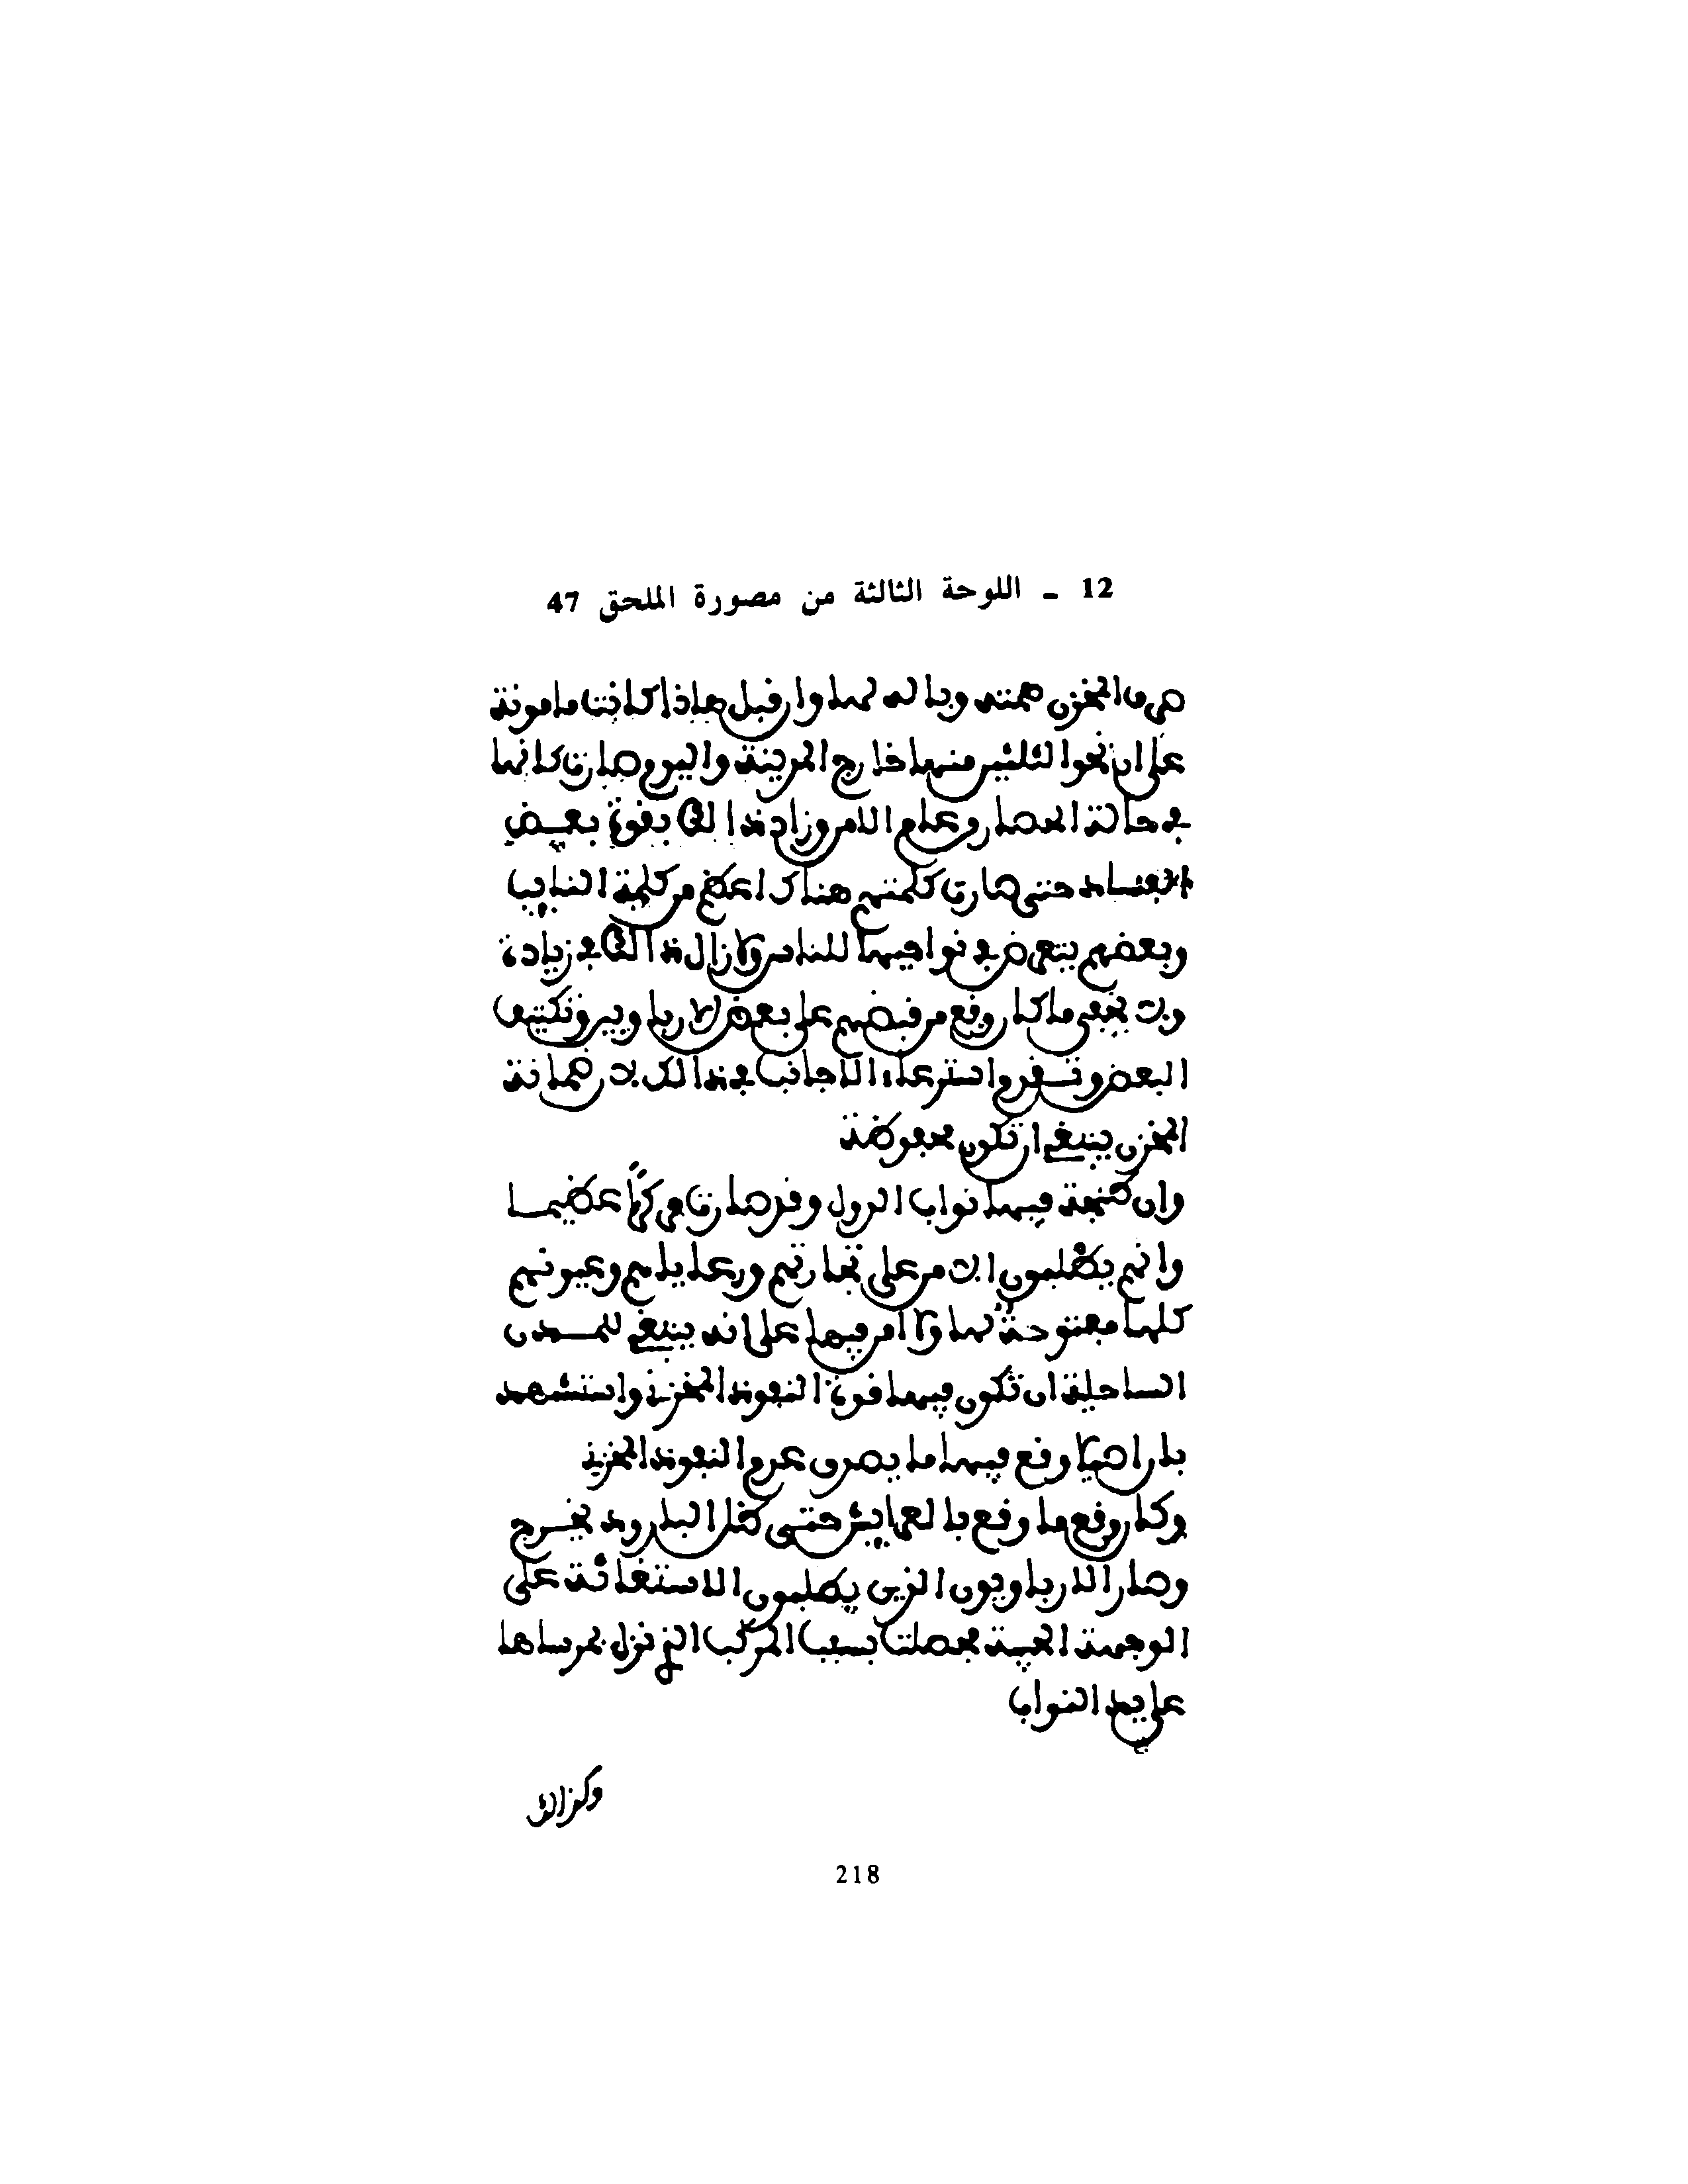 12 ـ اللوحة الثالثة من مصورة الملحق 47
صرف المخزن همته وباله لها وان قبل هاذا كانت مامونة
على ان نحو الثلثين منها خارج المدينة واليوم صارت كانها
في حالة الحصار وعدم الامن وزاد ذالك بقوة بعض
الفساد حتى صارت كلمتهم هناك اعظم من كلمة النايب
وبعضهم يتعرض في نواحيها للناس ولا زال ذالك في زيادة
ما كان وقع من قبضهم على بعض الارباويين وتكتيف
البعض وتسفر واسترعاء الاجانب في ذالك ضمانة
المخزن ينبغي ان تكون محفوظة
وان طنجة فيها نواب الدول وقد صارت مركزا عظيما
وانهم يطلبون الامن على تجارتهم ورعاياهم وعيونهم
كلها مفتوحة لها ولا امن فيها على انه ينبغي للمدن
الساحلية ان تكون فيها قوة النفوذ المخزني واستشهد
بان اصيلا وقع فيها ما يصرف عدم النفوذ المخزني
وكان وقع ما وقع بالعرايش حتى كان البارود يخرج
وصار الارباويون الذين يطلبون الاستغاثة على
الوجهة الحية فحصلت بسبب المركب الذي نزل بمرساها
على يد النواب
وكذالك
218